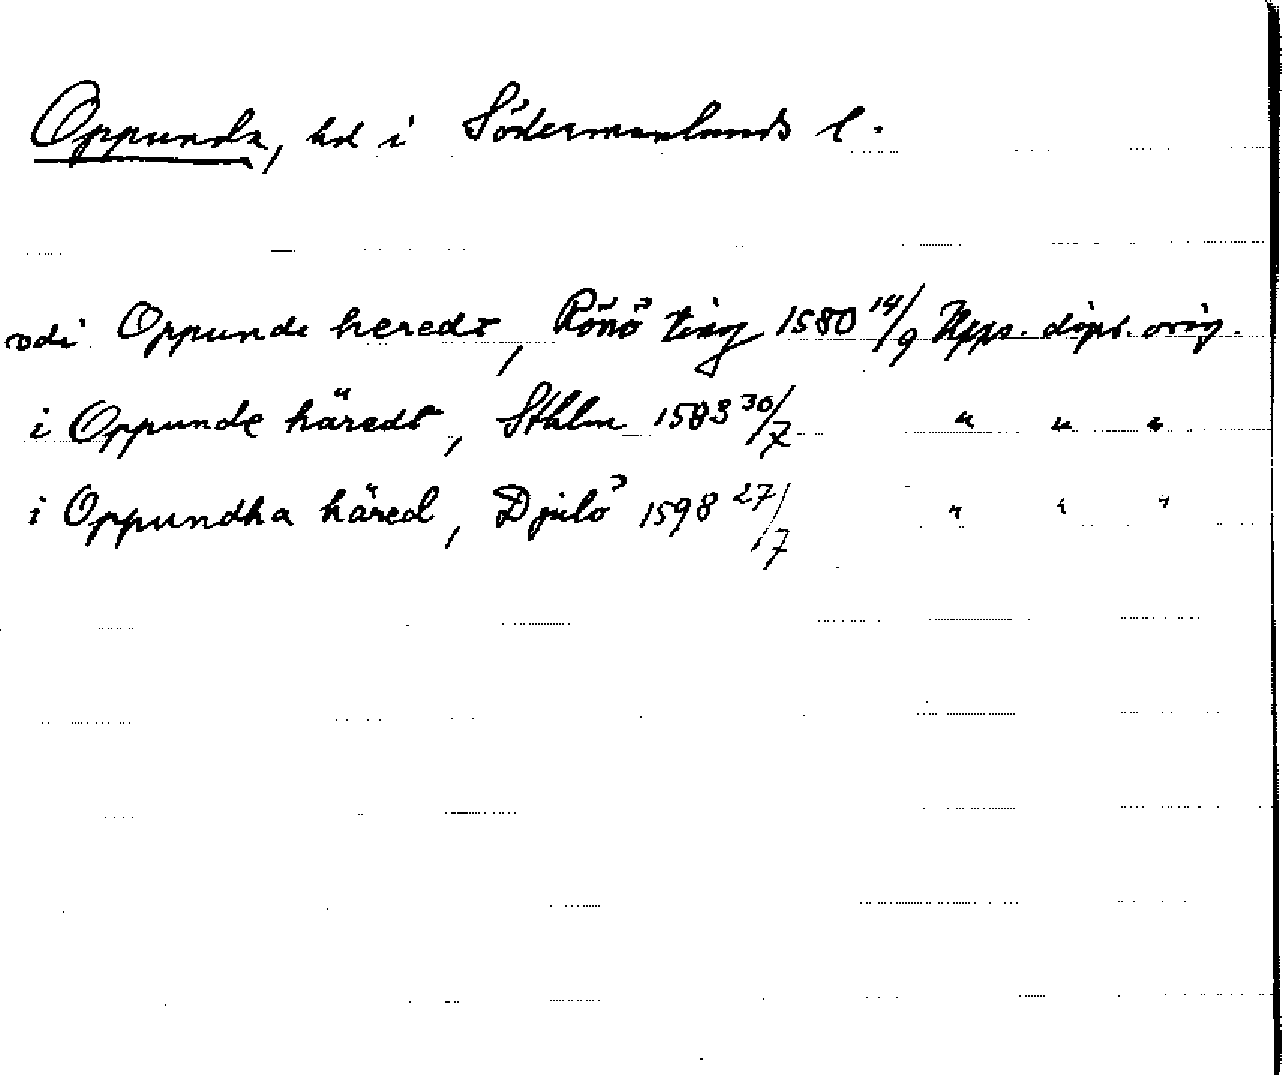 Oppunda, hd i Södermanlands l.
vdi Oppunde heredt, Rönö ting 1580 14/9 Upps. dipl. orig.
i Oppunde häredt, Sthlm 1583 30/7 " " "
i Oppundha häred, Djulö 1598 27/7 " " "